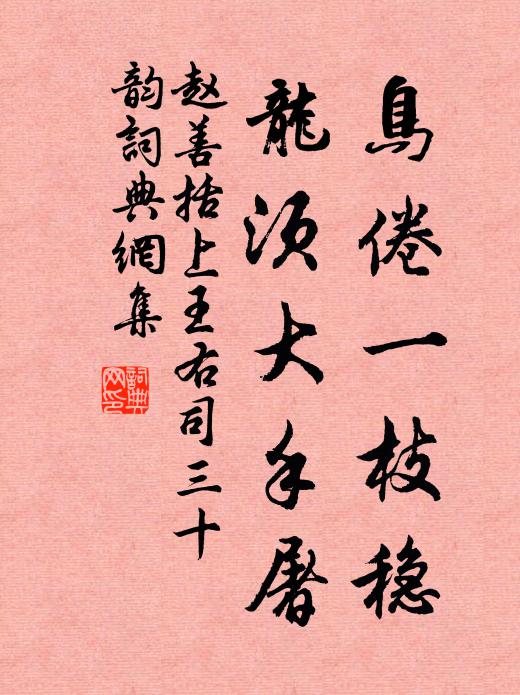 鳥倦一枝稳
龍须大手屠
赵善括上王右司三十
韵詞典網集
詞典網印